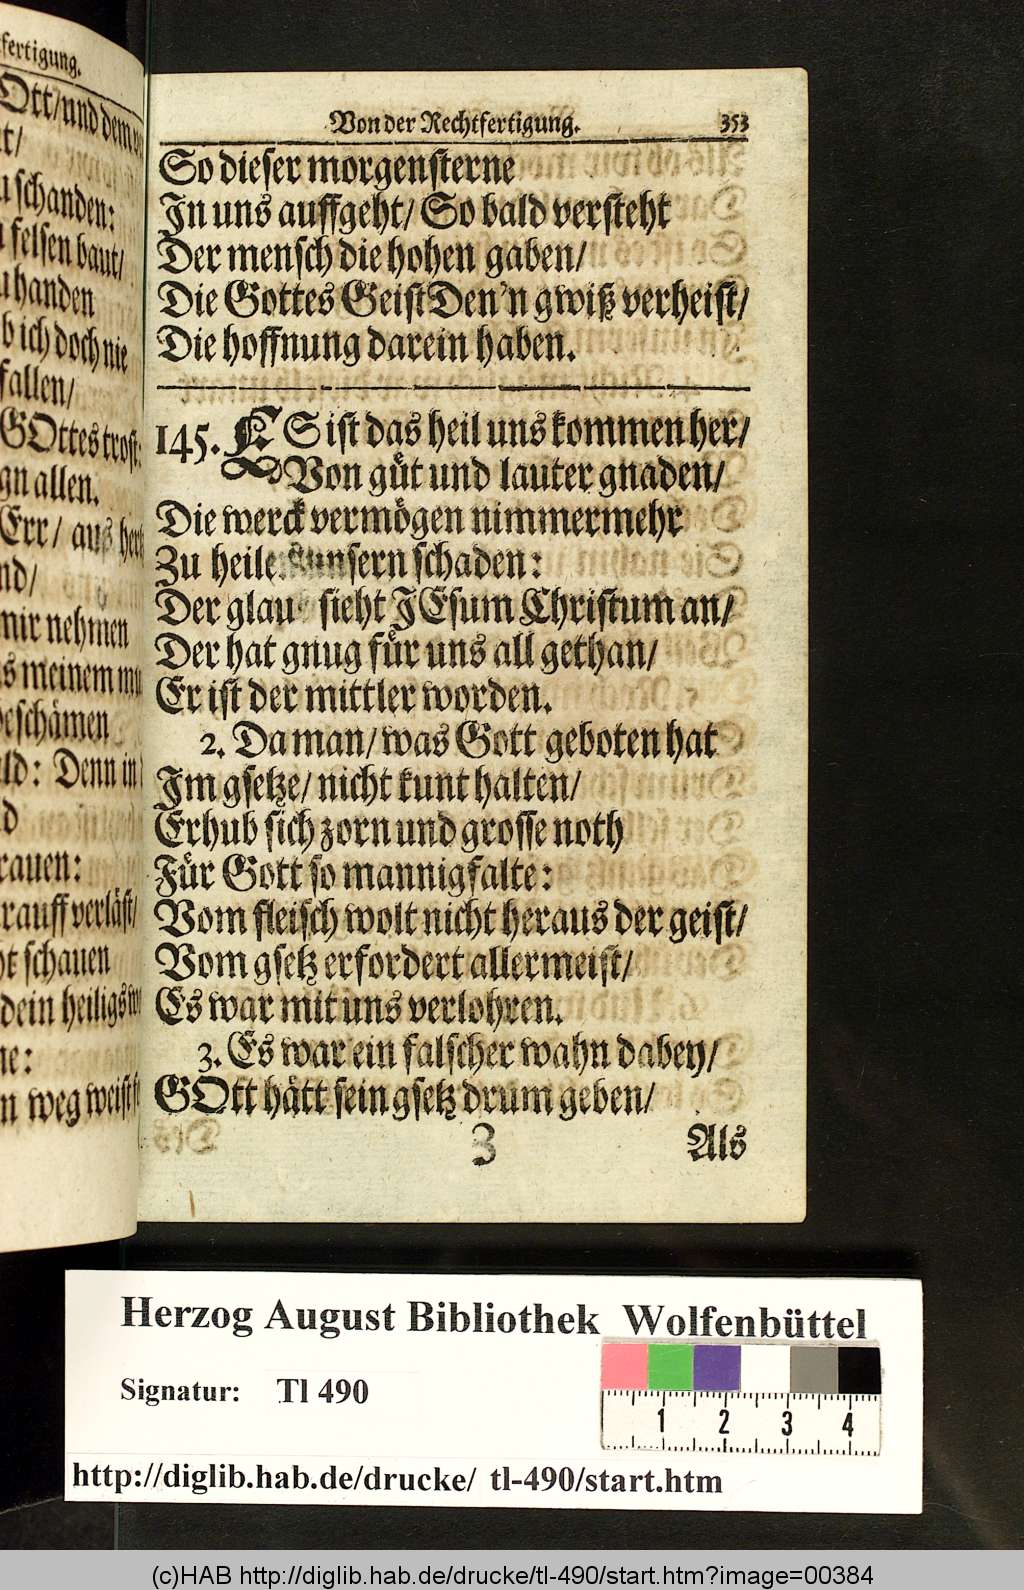 fertigung.
Ott/ und dem
t/
schanden:
felsen baut/
handen
b ich doch nie
fallen/
GOttes trost:
gn allen.
Err/ aus
nd/
mir nehmen
s meinem
beschämen
ld: Denn in
d
rauen:
rauff verläst/
ht schauen
dein heiligs
ne:
n weg weist
Von der Rechtfertigung. 353
So dieser morgensterne
In uns auffgeht/ So bald versteht
Der mensch die hohen gaben/
Die Gottes Geist Den'n gwiß verheist/
Die hoffnung darein haben.
145. ES ist das heil uns kommen her/
Von güt und lauter gnaden/
Die werck vermögen nimmermehr
Zu heile unsern schaden:
Der glau sieht JEsum Christum an/
Der hat gnug für uns all gethan/
Er ist der mittler worden.
2. Da man/ was Gott geboten hat
Im gsetze/ nicht kunt halten/
Erhub sich zorn und grosse noth
Für Gott so mannigfalte:
Vom fleisch wolt nicht heraus der geist/
Vom gsetz erfordert allermeist/
Es war mit uns verlohren.
3. Es war ein falscher wahn dabey/
GOtt hätt sein gsetz drum geben/
Z Als
Herzog August Bibliothek Wolfenbüttel
Signatur: Tl 490
1 2 3 4
http://diglib.hab.de/drucke/ tl-490/start.htm
(c)HAB http://diglib.hab.de/drucke/tl-490/start.htm?image=00384